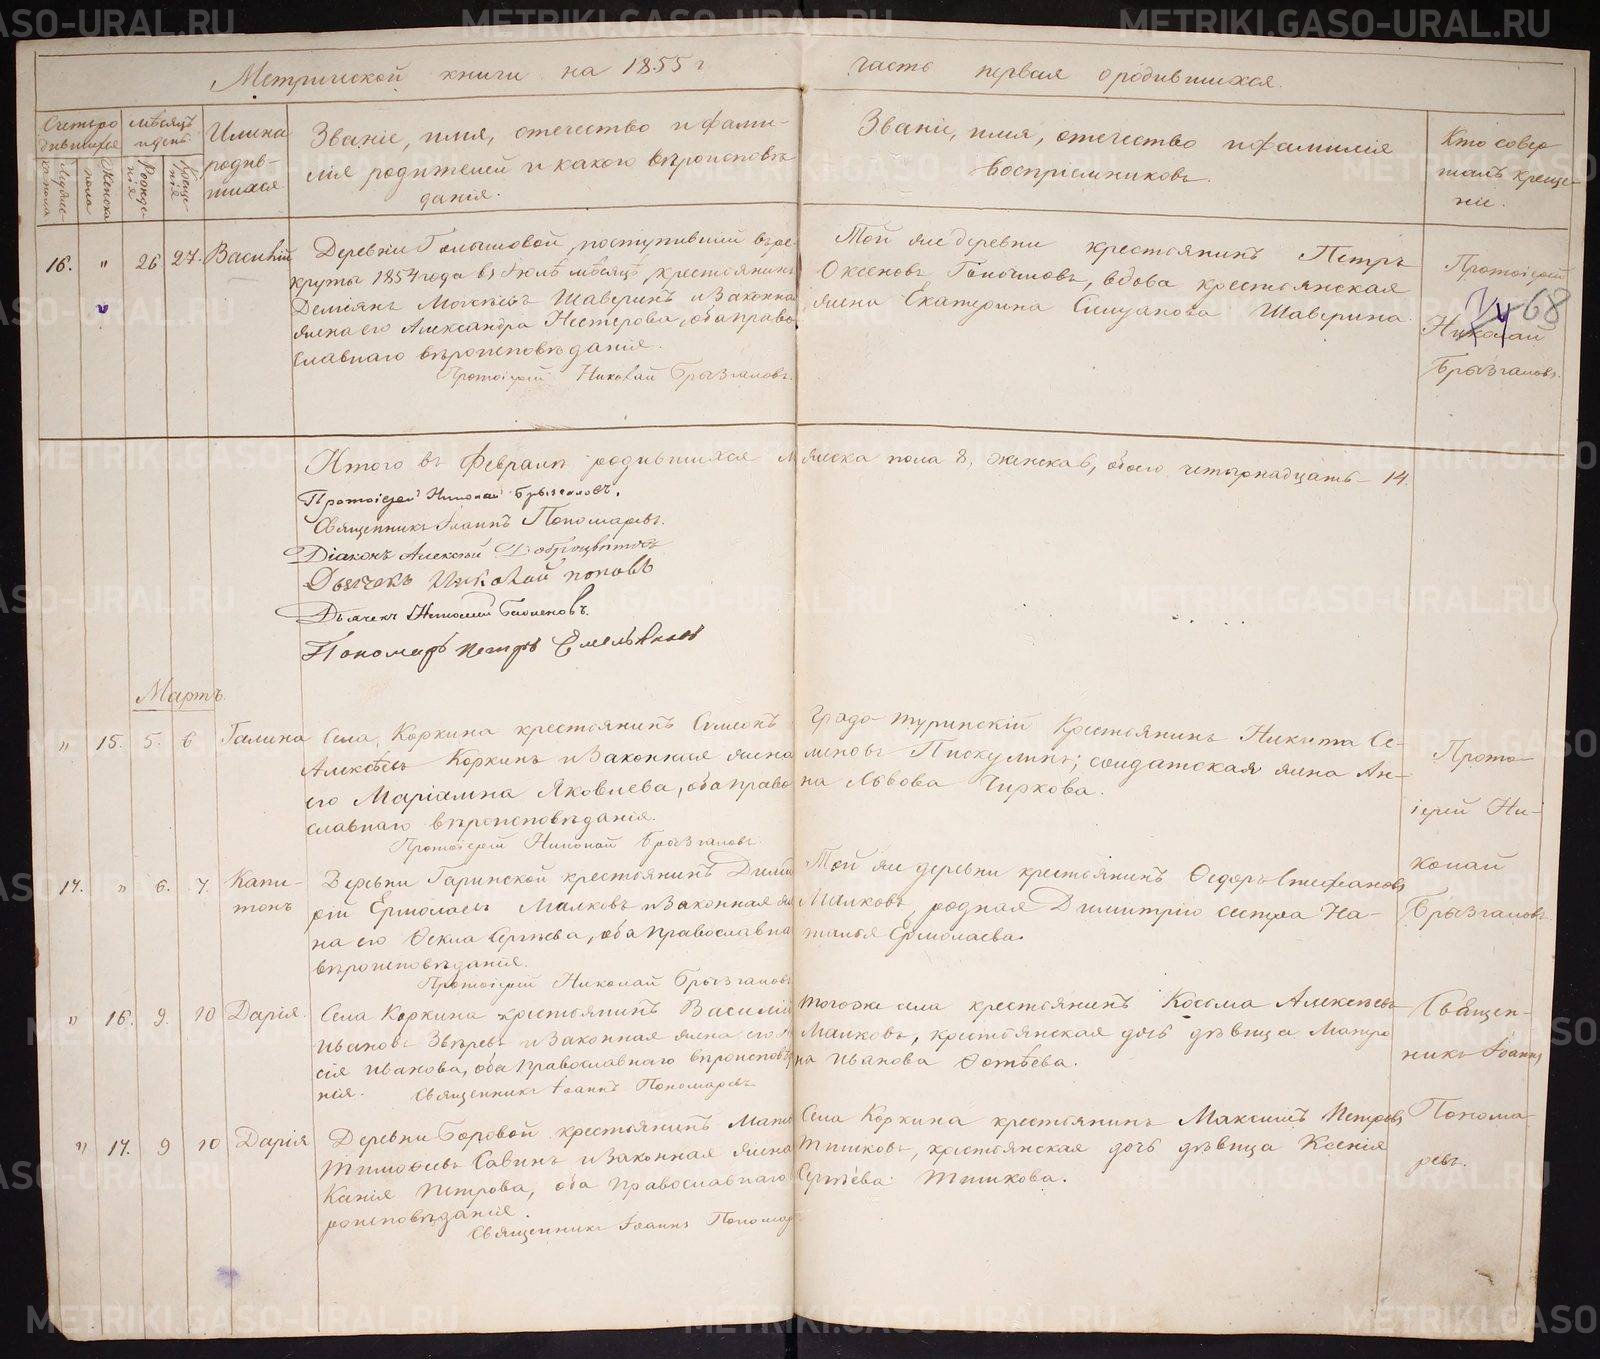 Метрической книги на 1855 г часть первая о родившихся.
Счетъ родившихся
Мужеска пола
Женска пола
Мѣсяцъ и день
Рожденія
Крещенія
Имена родившихся
Званіе, имя, отечество и фамилія родителей и какого вѣроисповѣданія.
Званіе, имя, отечество и фамилія воспріемниковъ.
Кто совершалъ крещеніе.
68
16. " 26 27. Василій
Деревни поступившій въ ре-
круты 1854 года въ мѣсяцѣ, крестьянинъ
Деміянъ Шаверинъ и законная
жена его Александра Нестерова, оба право-
славнаго вѣроисповѣданія.
Протоіерей Николай Брызгаловъ.
Той же деревни крестьянинъ Петръ
вдова крестьянская
жена Екатерина Шаверина.
Протоіерей
Николай
Брызгаловъ.
Итого въ Февралѣ родившихся мужеска пола 8, женска 6, обоего четырнадцать – 14.
Протоіерей Николай Брызгаловъ.
Священникъ Іоаннъ Пономаревъ.
Діаконъ Алексѣй
Дьячекъ Николай Поповъ
Дьячекъ
Пономарь Петръ Емельяновъ
Мартъ
" 15. 5. 6 Галина
Села Коркина крестьянинъ Симеонъ
Алексѣевъ Коркинъ и законная жена
его Маріамна Яковлева, оба право-
славнаго вѣроисповѣданія.
Протоіерей Николай Брызгаловъ
Градо-Туринскій крестьянинъ Никита Се-
меновъ Пискулинъ; солдатская жена Ан-
на Львова Чиркова.
Прото-
іерей Ни-
колай
Брызгаловъ.
17. " 6. 7. Капи-
тонъ
Деревни Гаринской крестьянинъ Димит-
рій Ермолаевъ Малковъ и законная же-
на его Ѳекла Сергѣева, оба православна
вѣроисповѣданія.
Протоіерей Николай Брызгаловъ
Той же деревни крестьянинъ Ѳедоръ Стефановъ
Малковъ, родная Димитрію сестра На-
талья Ермолаева.
" 16. 9. 10 Дарія.
Села Коркина крестьянинъ Василій
Ивановъ Звѣревъ и законная жена его
Иванова, оба православнаго вѣроисповѣда-
нія. Священникъ Іоаннъ Пономаревъ
тогоже села крестьянинъ Косьма Алексѣевъ
Малковъ, крестьянская дочь дѣвица Матро-
на Иванова Ѳотѣева.
Священ-
никъ Іоаннъ
Понома-
ревъ.
" 17. 9 10 Дарія
Деревни Боровой крестьянинъ
Тимоѳеевъ Савинъ и законная жена
Ксенія Петрова, оба православнаго вѣ-
роисповѣданія.
Священникъ Іоаннъ Пономар
Села Коркина крестьянинъ Максимъ Петровъ
Тишковъ, крестьянская дочь дѣвица Ксенія
Сергѣева Тишкова.
METRIKI.GASO-URAL.RU